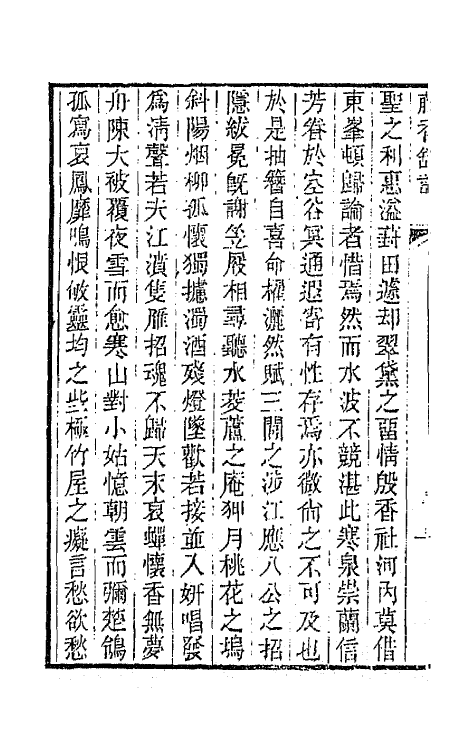 聖之利惠溢葑田遽却翠黛之畱情殷香社河內莫借
東峯頓歸論者惜焉然而水波不競湛此寒泉崇蘭信
芳眷於空谷冥通遐寄有性存焉亦微尙之不可及也
於是抽簪自喜命櫂灑然賦三閭之涉江應八公之招
隱紱冕旣謝笠屐相尋聽水菱蘆之庵狎月桃花之塢
斜陽烟柳孤懷獨攄濁酒殘燈墜歡若接並入姸唱發
爲淸聲若夫江濆隻雁招魂不歸天末哀蟬懷香無夢
舟陳大被覆夜雪而愈寒山對小姑憶朝雲而彌楚鴒
孤寫哀鳳靡鳴恨倣靈均之些極竹屋之癡言愁欲愁